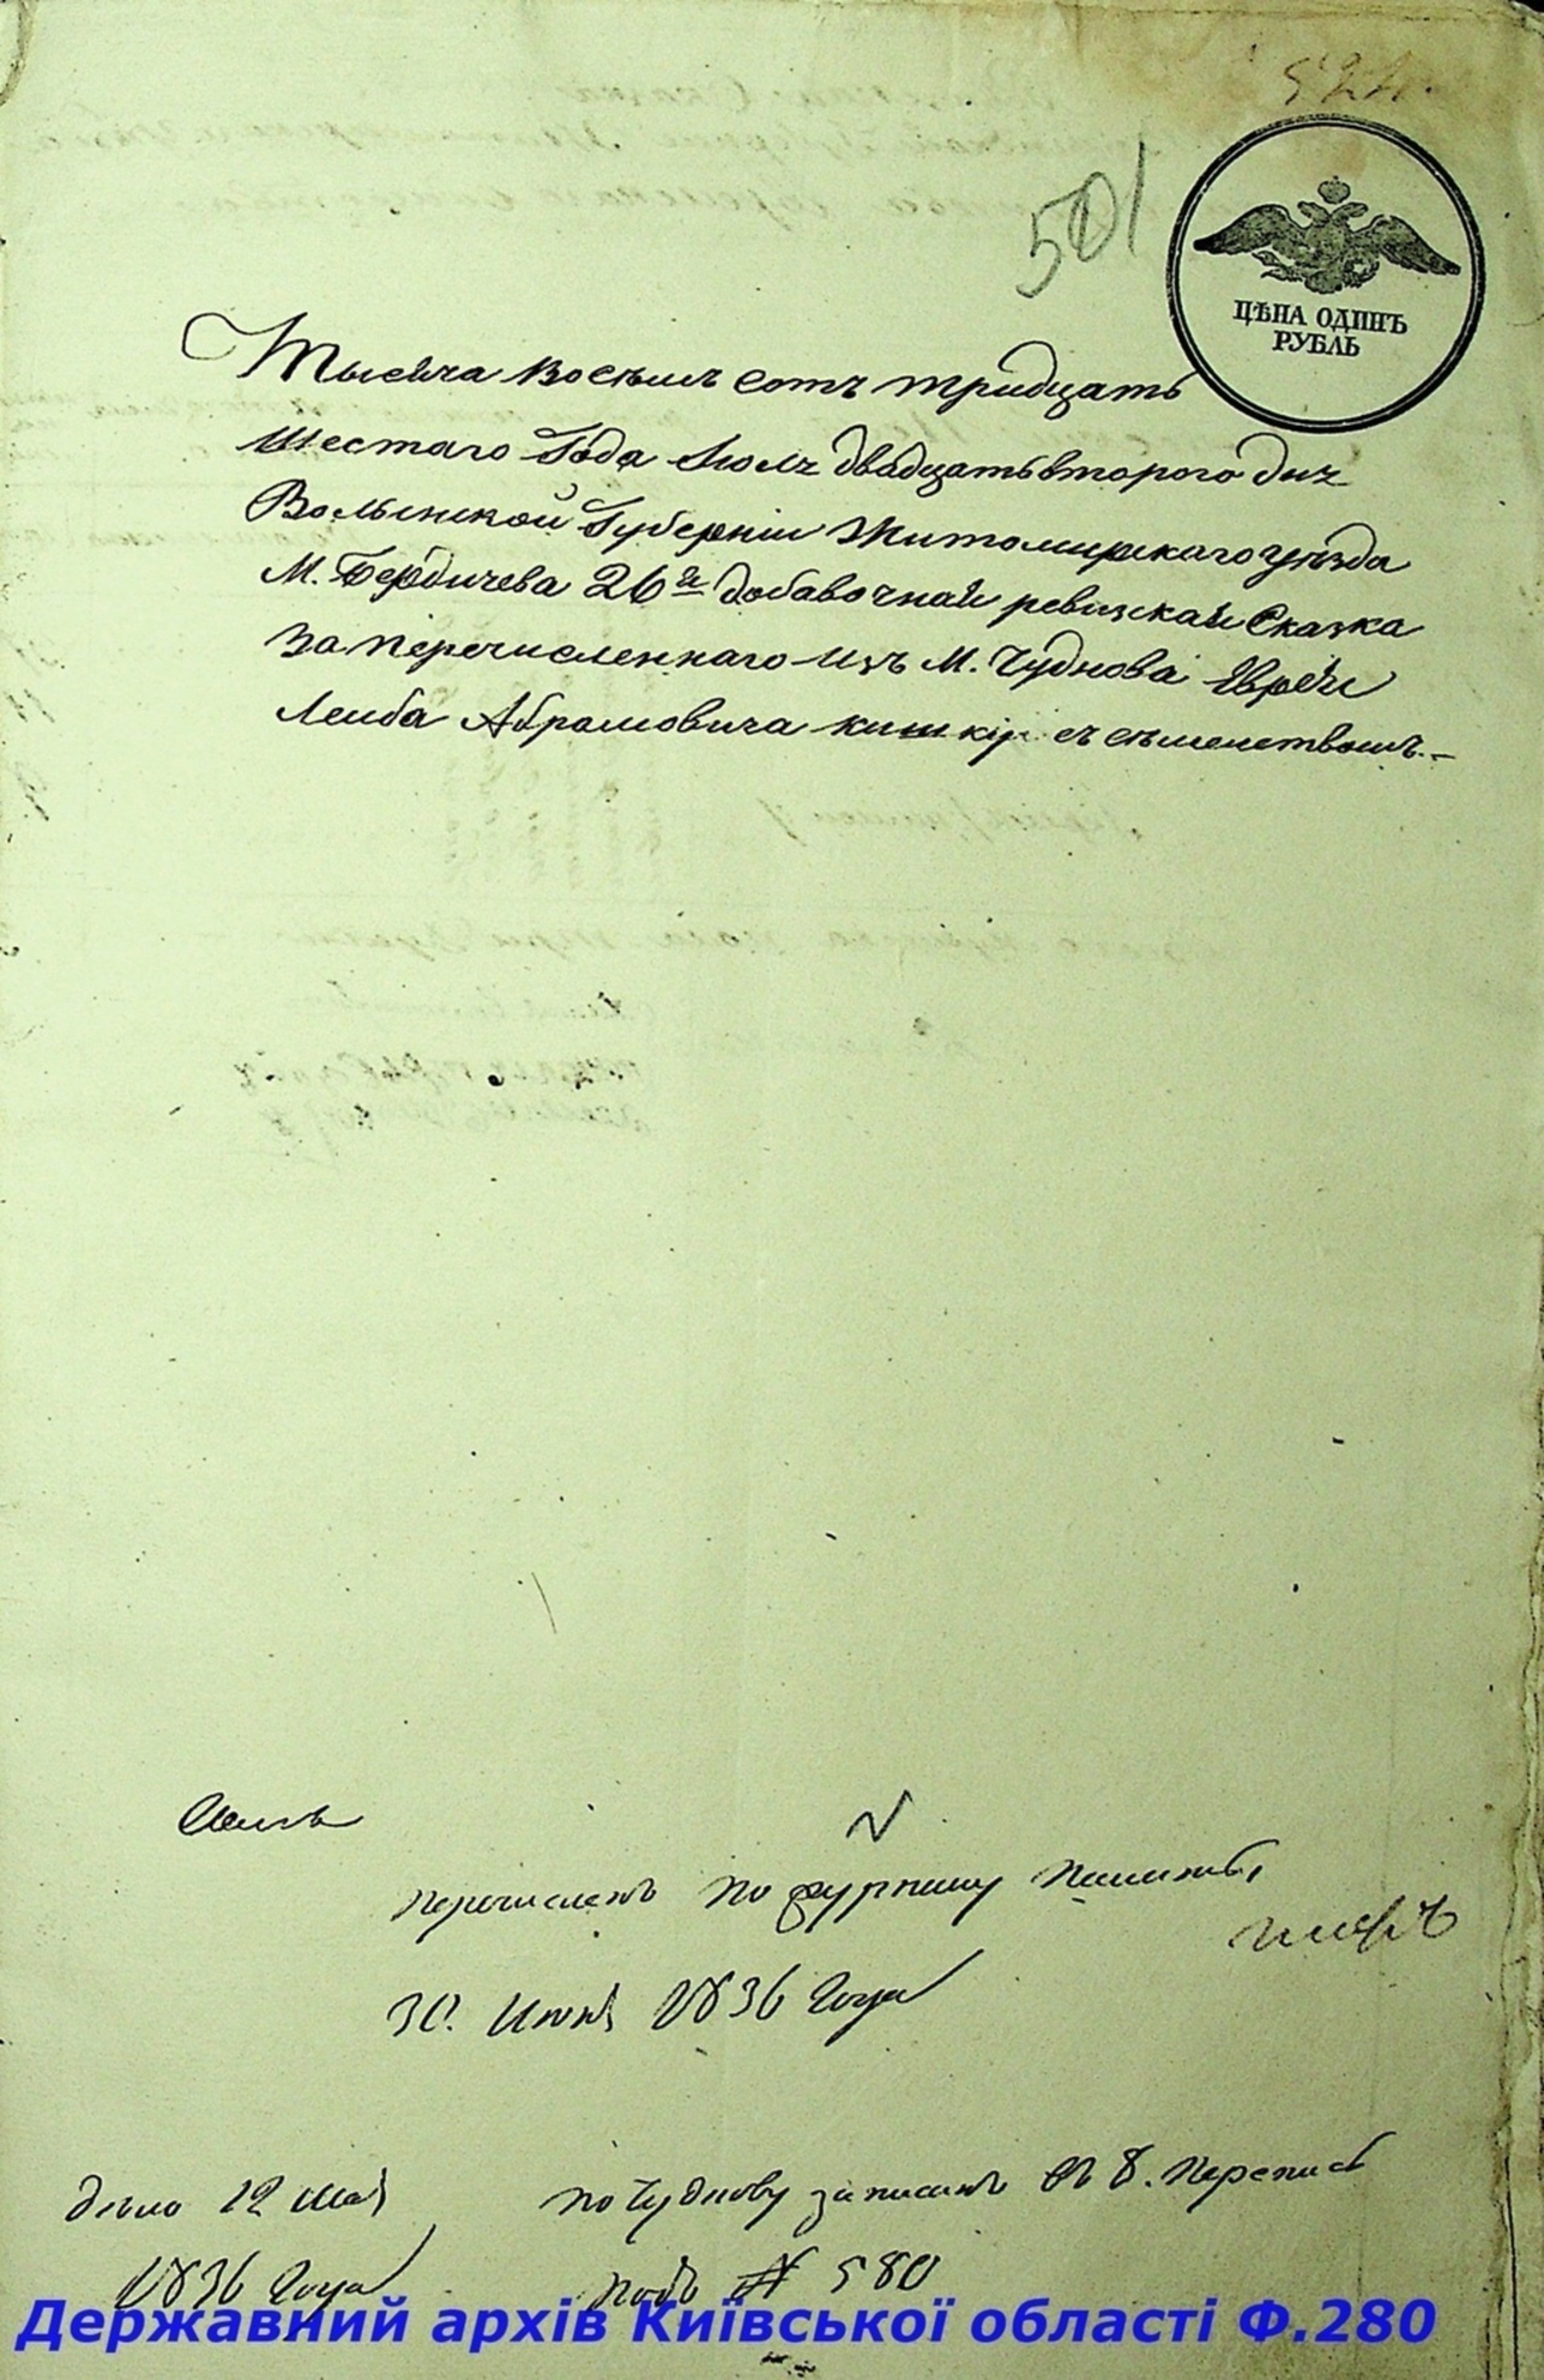 501
ЦѢНА ОДИНЪ
РУБЛЬ
Тысяча восемъ сотъ тридцать
Шестаго Года Іюля двадцать второго дня
Волынской Губерніи Житомирскаго уѣзда
М. Бердичева 26я добавочная ревизская Сказка
За перечисленнаго изъ М. Чуднова Еврея
Лейба Абрамовича с семействомъ.–
перечисленъ по
30. Июня 1836 Года
дѣло 12 мая
1836 Года
по Чуднову записанъ въ 8. Перепись
подъ № 580
Державний архів Київської області Ф.280